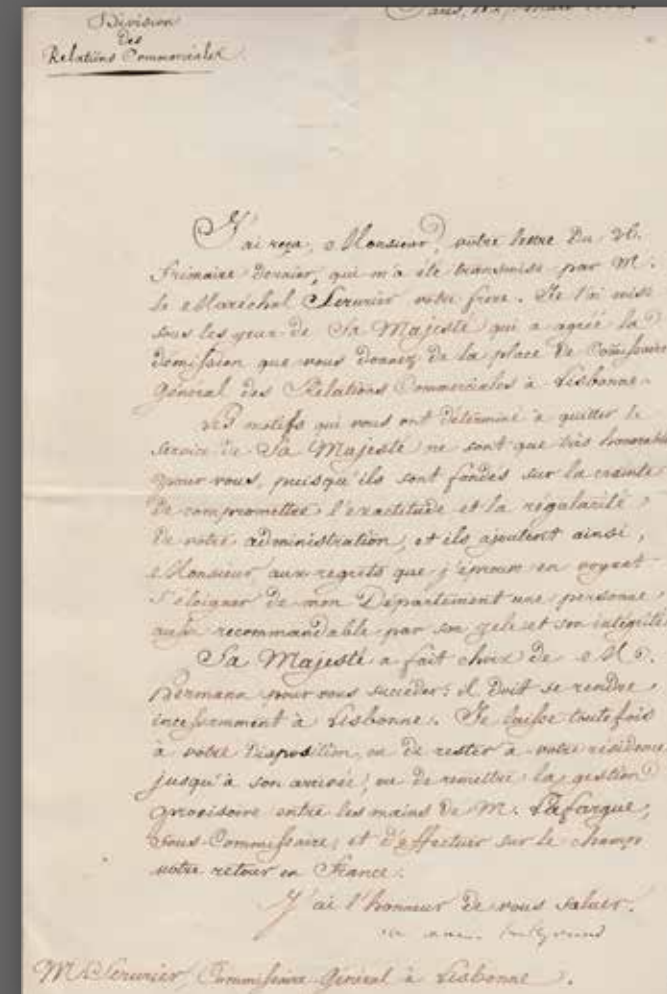 Division
Des
Relations Commerciales
Paris, le
J'ai reçu, Monsieur, votre lettre du 26.
Frimaire dernier, qui m'a été transmise par M.
le Maréchal Serurier votre frere. Je l'ai mise
sous les yeux de Sa Majesté qui a agréé la
démission que vous donnez de la place de Comissaire
Général des Relations Commerciales à Lisbonne.
Les motifs qui vous ont déterminé à quitter le
service de Sa Majesté ne sont que très honorables
pour vous, puisqu'ils sont fondés sur la crainte
de compromettre l'exactitude et la régularité
de votre administration, et ils ajoutent ainsi,
Monsieur, aux regrets que j'éprouve en voyant
s'éloigner de mon Département une personne
aussi recommandable par son zele et son intégrité.
Sa Majesté a fait choix de M.
hermann pour vous succéder; il doit se rendre
incessamment à Lisbonne. Je laisse toutefois
à votre disposition, ou de rester à votre résidence
jusqu'à son arrivée, ou de remettre la gestion
provisoire entre les mains de M. Lafargue,
Sous-Commissaire, et d'effectuer sur le champ
votre retour en France.
J'ai l'honneur de vous saluer.
M. Serurier, Commissaire-Général à Lisbonne.